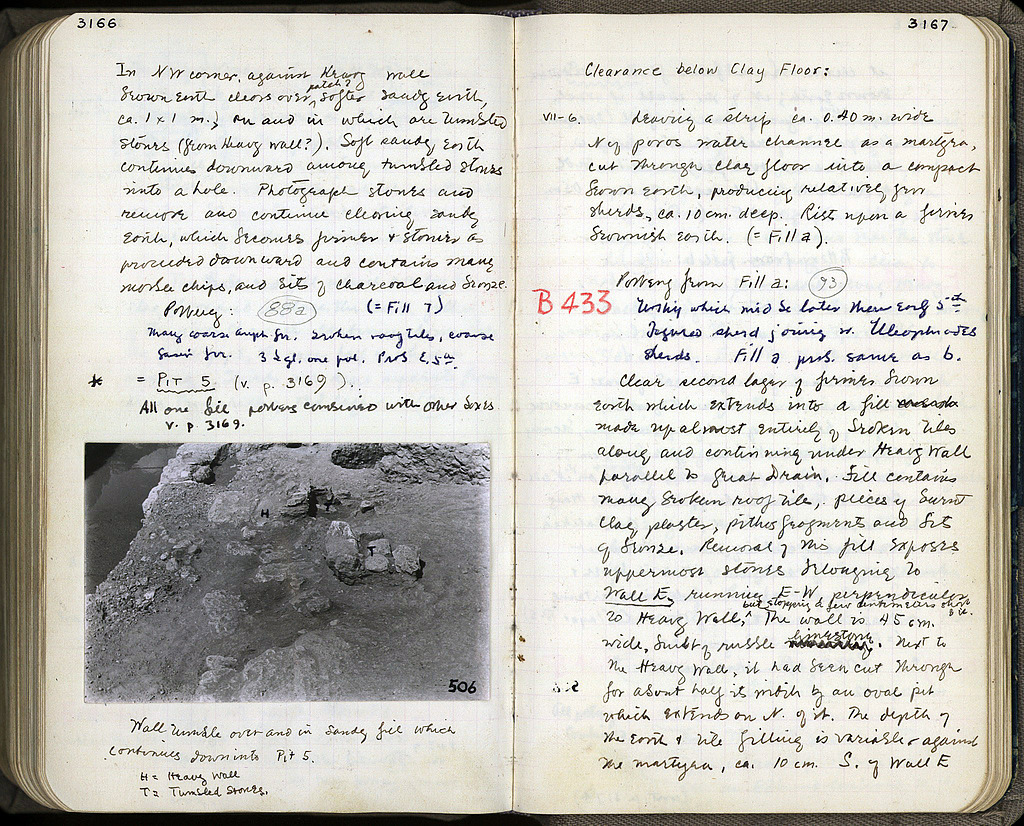 3166
In NW corner, against Heavy Wall
brown earth clears over softer sandy earth,
patch?
ca. 1 x 1 m.; on and in which are tumbled
stones (from Heavy Wall?). Soft sandy earth
continues downward among tumbled stones
into a hole. Photograph stones and
remove and continue clearing sandy
earth, which becomes firmer & stonier as
proceeded downward and contains many
marble chips, and bits of charcoal and bronze.
Pottery: 88a (= Fill 7)
Many coarse amph. fr. broken roof tiles, coarse
basin fr. 3 bgl. one pol. Prob E. 5th
* = Pit 5 (v. p. 3169).
All one fill pottery combined with other boxes
v. p. 3169.
H
T
506
Wall tumble over and in sandy fill which
continues down into Pit 5.
H = Heavy Wall
T = Tumbled Stones.
3167
Clearance below Clay Floor:
VII-6. Leaving a strip ca. 0.40 m. wide
N of poros water channel as a martyra,
cut through clay floor into a compact
brown earth, producing relatively few
sherds, ca. 10 cm. deep. Rest upon a firmer
brownish earth. (= Fill a).
Pottery from Fill a: 93
B 433
Nothing which need be later than early 5th
Figured sherd joining w. Kleophrades
sherds. Fill a prob. same as b.
Clear second layer of firmer brown
earth which extends into a fill
made up almost entirely of broken tiles
along and continuing under Heavy Wall
parallel to Great Drain. Fill contains
many broken roof tile, pieces of burnt
clay, plaster, pithos fragments and bits
of bronze. Removal of this fill exposes
uppermost stones belonging to
Wall E, running E-W, perpendicular
but stopping a few centimeters short of it.
to Heavy Wall. The wall is 45 cm.
wide, built of rubble limestone. Next to
the Heavy Wall, it had been cut through
for about half its width by an oval pit
which extends on N. of it. The depth of
the earth & tile filling is variable - against
the martyra, ca. 10 cm. S. of Wall E